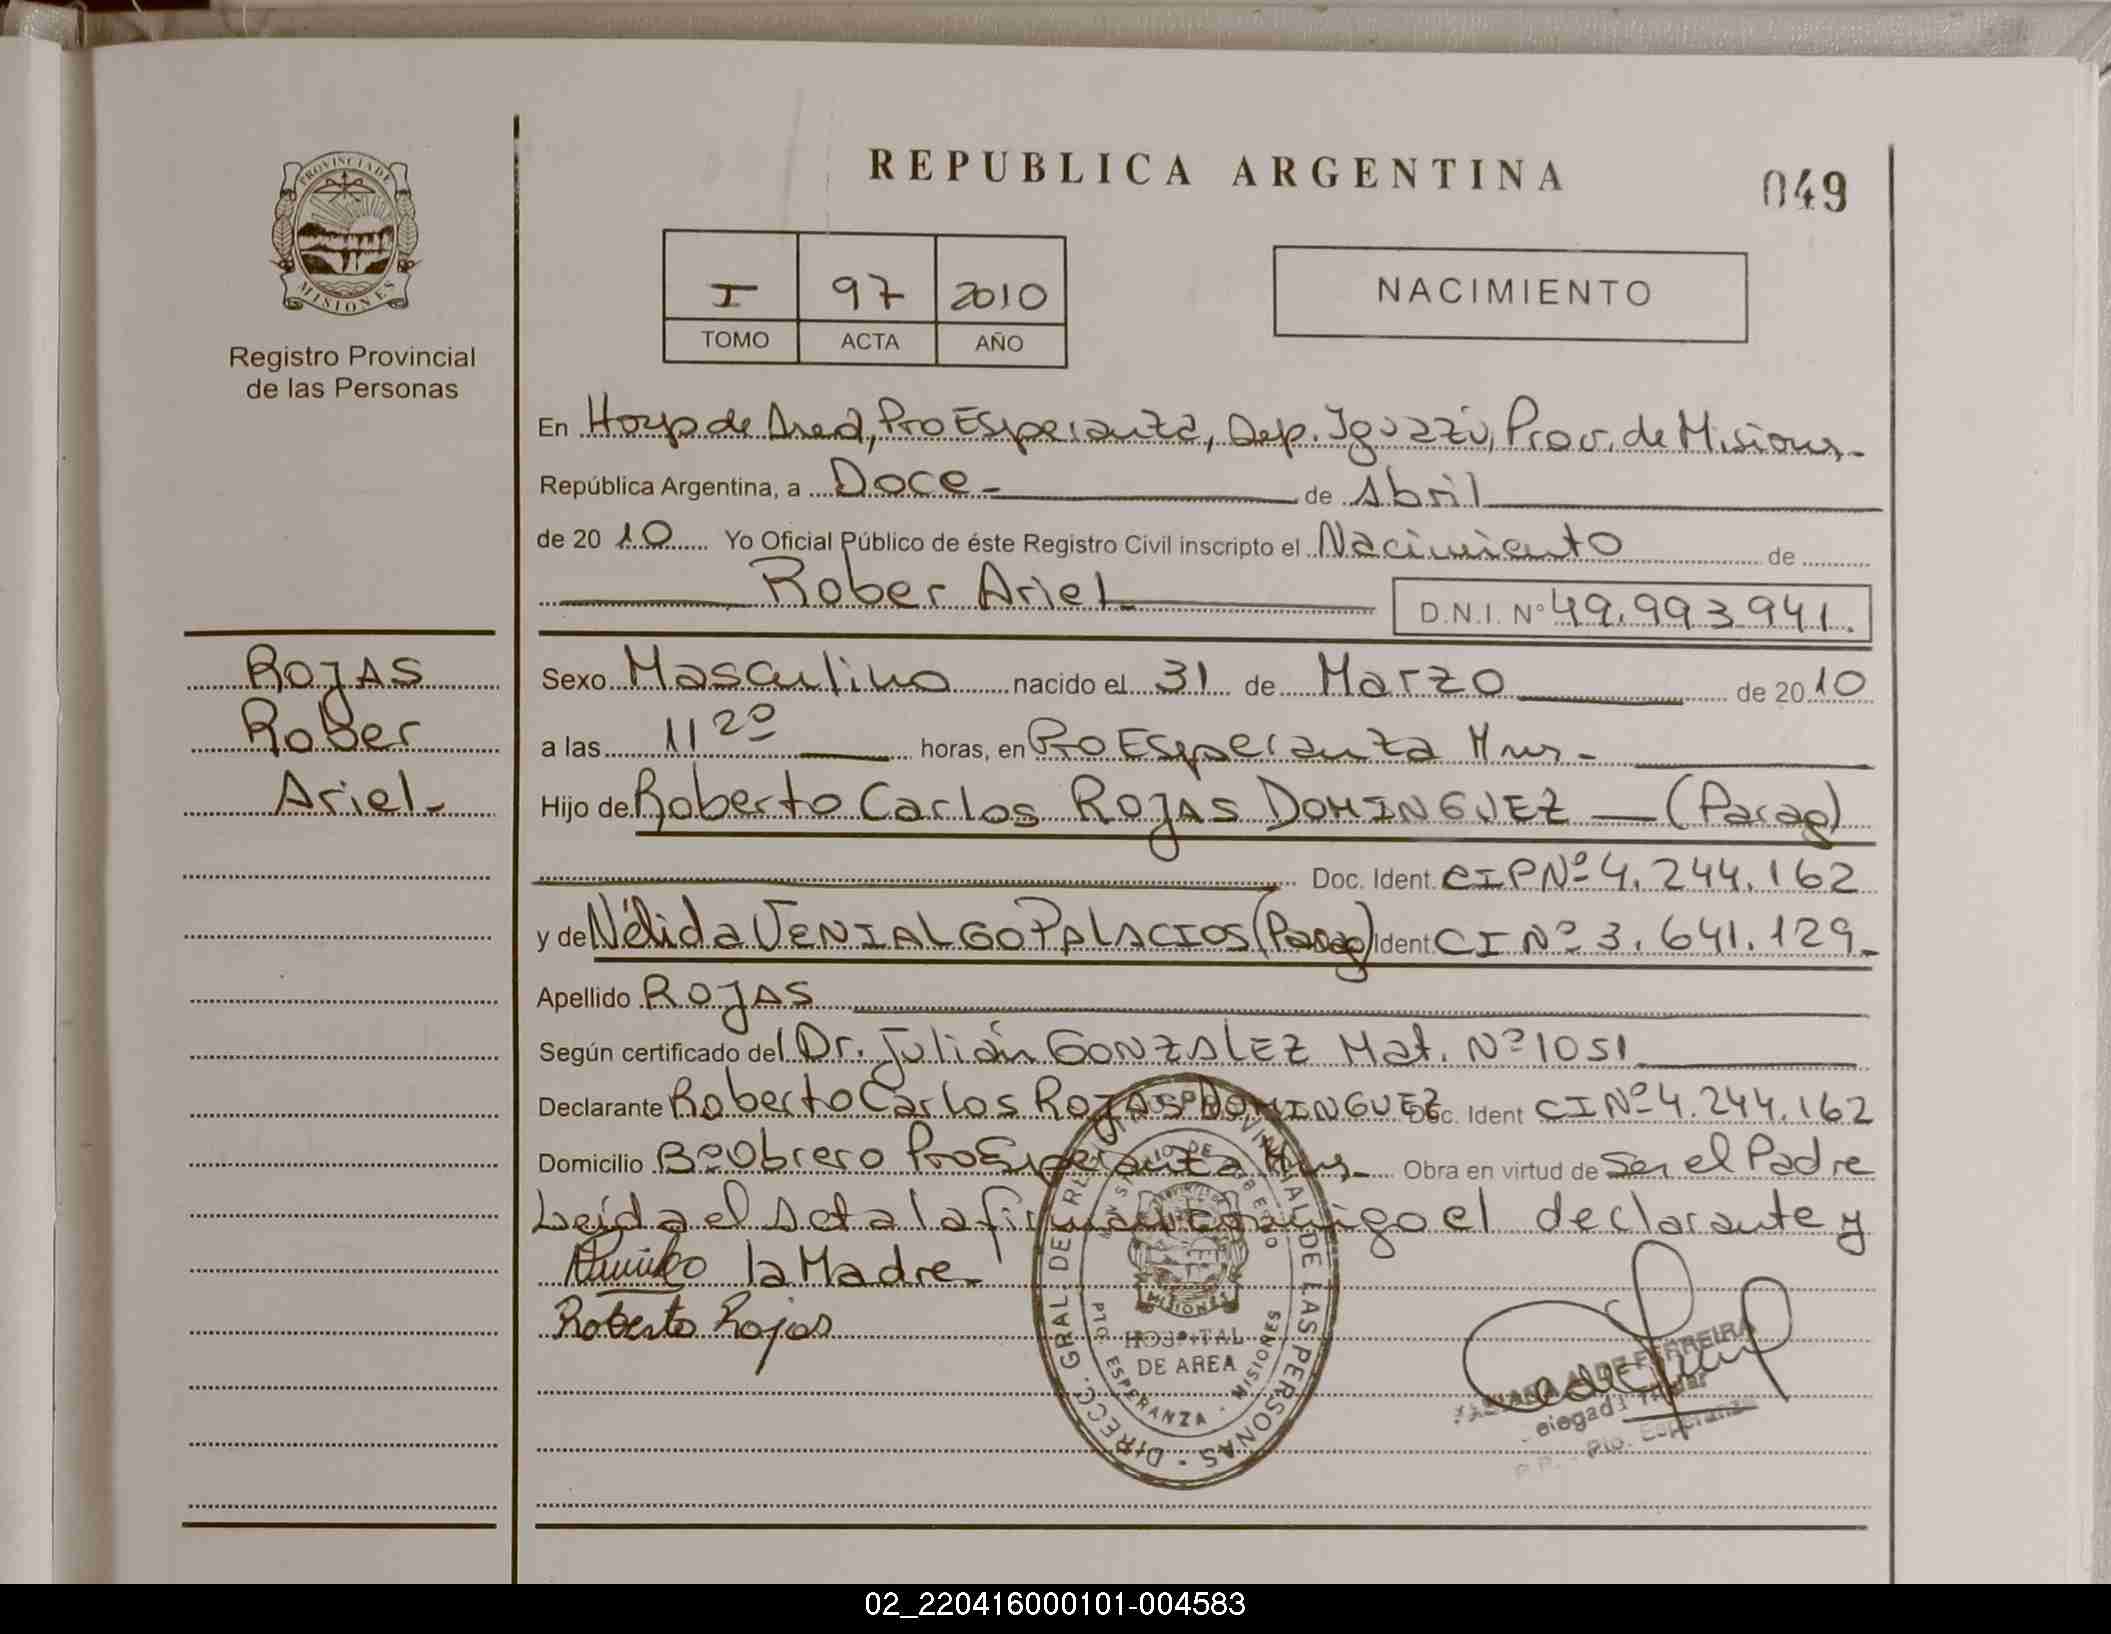 PROVINCIA DE
MISIONES
Registro Provincial
de las Personas
REPUBLICA ARGENTINA
049
I 97 2010
TOMO ACTA AÑO
NACIMIENTO
En Hosp de Area, Pto Esperanza, Dep. Iguazú, Prov. de Misiones
República Argentina, a Doce de Abril
de 2010 Yo Oficial Público de éste Registro Civil inscripto el Nacimiento de
Rober Ariel D.N.I. Nº 49.993.941.
ROJAS
Rober
Ariel
Sexo Masculino nacido el 31 de Marzo de 2010
a las 11 20 horas, en Pto Esperanza Mnes
Hijo de Roberto Carlos ROJAS DOMINGUEZ (Parag)
Doc. Ident. CIP Nº 4.244.162
y de Nélida VENIALGO PALACIOS (Parag) Ident CI Nº 3.641.129
Apellido ROJAS
Según certificado del Dr. Julián GONZALEZ Mat. Nº 1051
Declarante Roberto Carlos ROJAS DOMINGUEZ Doc. Ident CI Nº 4.244.162
Domicilio Bº Obrero Pto Esperanza Mnes Obra en virtud de Ser el Padre
Leída el Acta la firman conmigo el declarante y
la Madre
Roberto Rojas
DIRECC. GRAL. DE REG. PROVINCIAL DE LAS PERSONAS
MINISTERIO DE GOBIERNO
MISIONES
HOSPITAL
DE AREA
PTO. ESPERANZA - MISIONES
DE FERREIRA
Pto. Esperanza
02_220416000101-004583